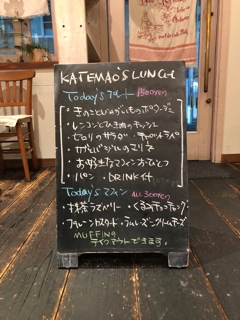 KATEMAO'S LUNCH
Today's プレート 1500yen
・きのことじゃがいものポタージュ
・レンコンとひき肉のキッシュ
・セロリのサラダ ・キャロットラペ
・バジルのマリネ
・お好きなマフィンおひとつ
・パン ・DRINK付
Today's マフィン ALL 300yen
・抹茶ラズベリー ・くるみチョコチャンク
・プレーンカスタード ・ラムレーズンクリームチーズ
MUFFINは
テイクアウトできます。